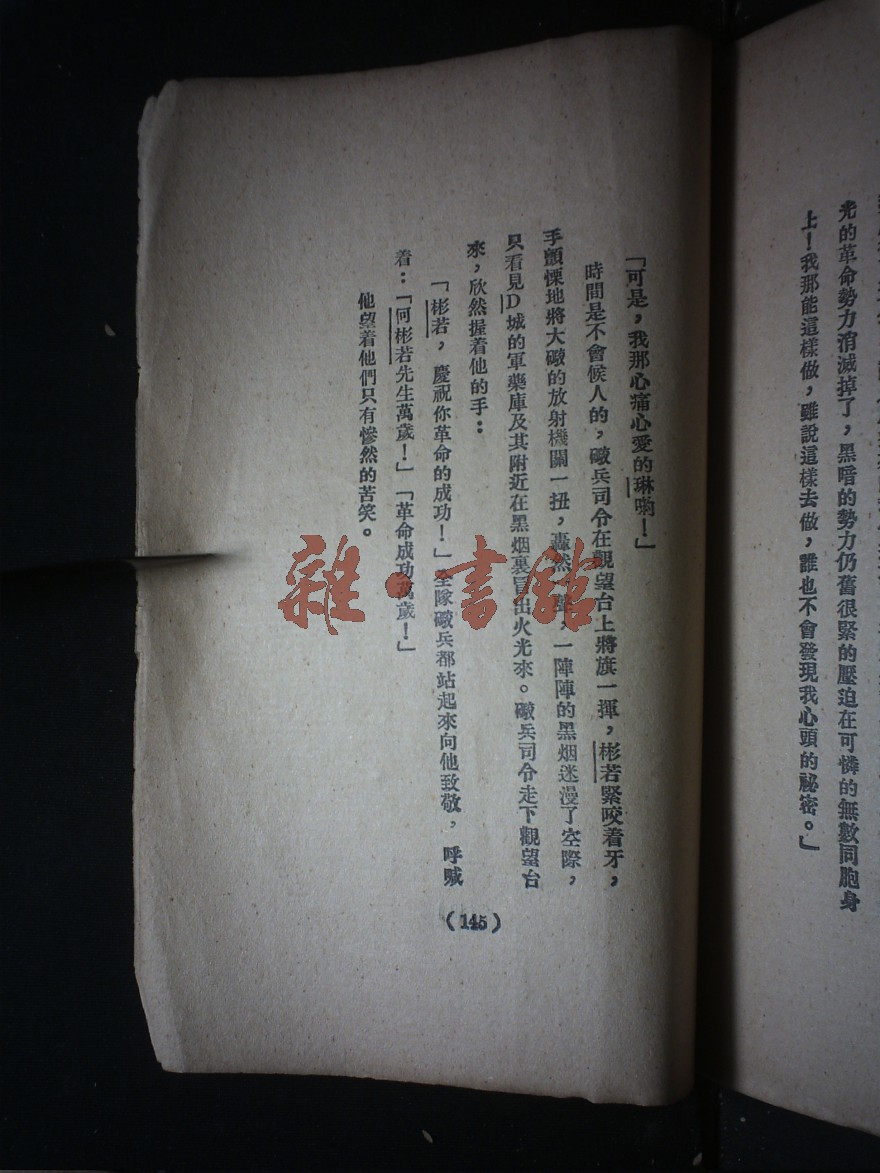 光的革命勢力消滅掉了，黑暗的勢力仍舊很緊的壓迫在可憐的無數同胞身
上！我那能這樣做，雖說這樣去做，誰也不會發現我心頭的祕密。」
「可是，我那心痛心愛的琳喲！」
時間是不會候人的，礮兵司令在觀望台上將旗一揮，彬若緊咬着牙，
手顫慄地將大礮的放射機關一扭，轟然一聲，一陣陣的黑烟迷漫了空際，
只看見D城的軍藥庫及其附近在黑烟裏冒出火光來。礮兵司令走下觀望台
來，欣然握着他的手：
「彬若，慶祝你革命的成功！」全隊礮兵都站起來向他致敬，呼喊
着：「何彬若先生萬歲！」「革命成功萬歲！」
他望着他們只有慘然的苦笑。
（145）
雜·書館